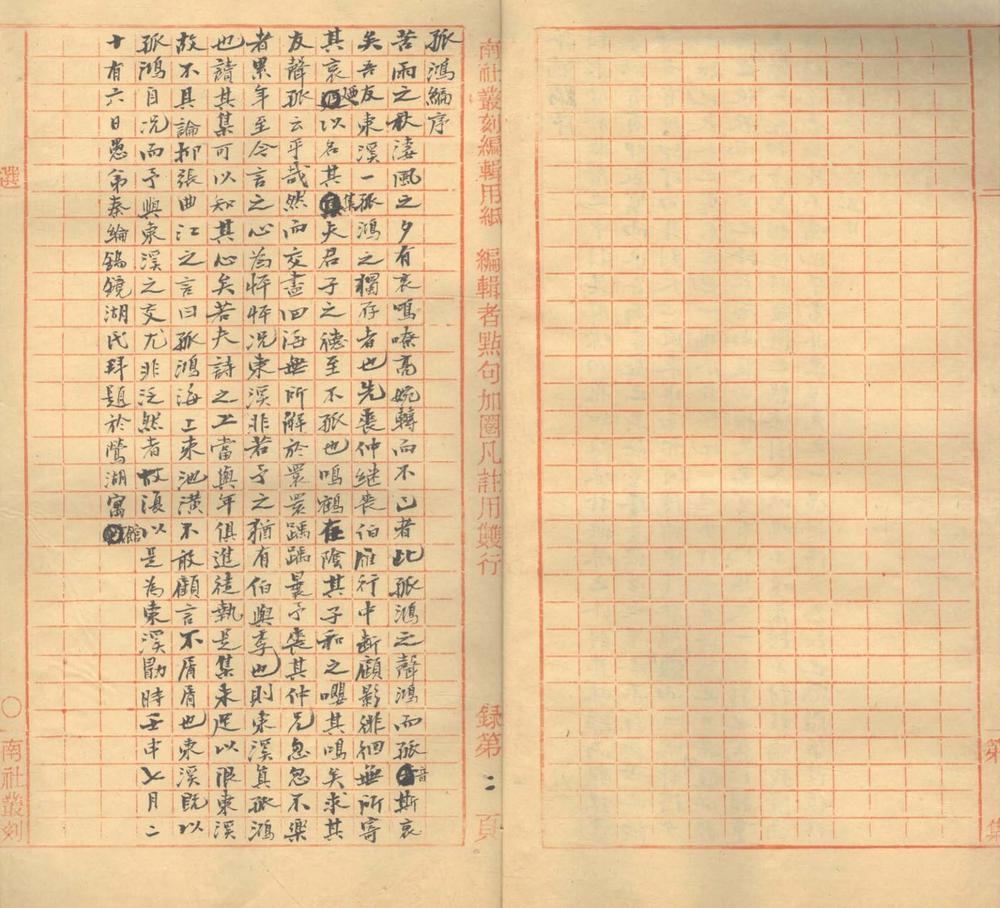 第 集
南社叢刻編輯用紙 編輯者點句加圈凡註用雙行 錄第二頁
孤鴻編序
苦雨之秋淒風之夕有哀鳴嘹高婉轉而不已者此孤鴻之聲鴻而孤音斯哀
矣吾友東溪一孤鴻之獨存者也先喪仲継喪伯雁行中斷顧影徘徊無所寄
其哀迺以名其集夫君子之德至不孤也鳴鶴在陰其子和之嚶其鳴矣求其
友聲孤云乎哉然而交盡四海無所解於睘睘踽踽曩予喪其仲兄忽忽不樂
者累年至今言之心為怦怦况東溪非若予之猶有伯與季也則東溪真孤鴻
也讀其集可以知其心矣若夫詩之工當與年俱進徒執是集未足以限東溪
故不具論抑張曲江之言曰孤鴻海上來池潢不敢顧言不屑屑也東溪既以
孤鴻自况而予與東溪之交尤非泛然者故復以是為東溪勖時壬申七月二
十有六日愚弟秦綸錫鏡湖氏拜題於鶯湖寓館
選 〇 南社叢刻